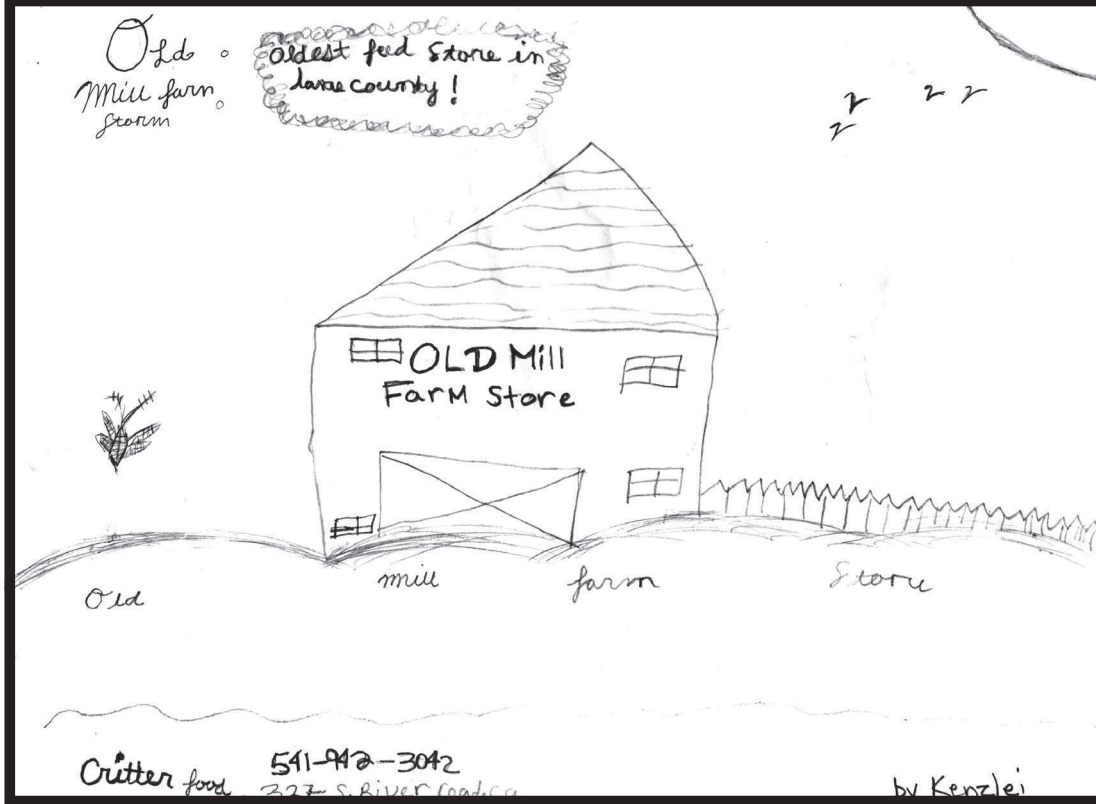 Old
Mill farm
Storm
Oldest feed Store in
lane county!
OLD Mill
Farm Store
Old mill farm Store
Critter food
541-942-3042
S. River
by Kenzlei